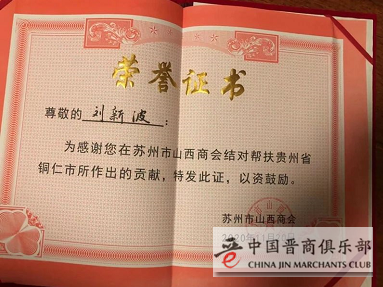 荣誉证书
尊敬的 刘新波 :
为感谢您在苏州市山西商会结对帮扶贵州省
铜仁市所作出的贡献，特发此证，以资鼓励。
苏州市山西商会
中国晋商俱乐部
CHINA JIN MARCHANTS CLUB